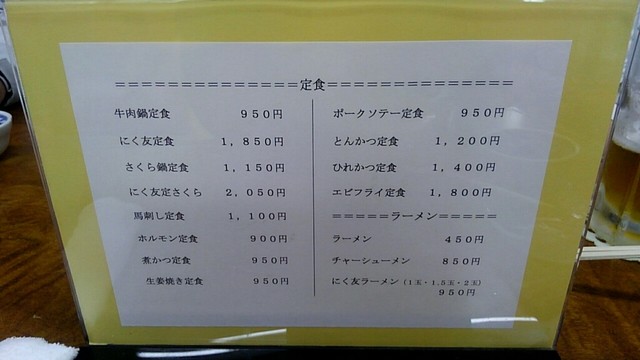 ==============定食==============
牛肉鍋定食 950円
にく友定食 1,850円
さくら鍋定食 1,150円
にく友定さくら 2,050円
馬刺し定食 1,100円
ホルモン定食 900円
煮かつ定食 950円
生姜焼き定食 950円
ポークソテー定食 950円
とんかつ定食 1,200円
ひれかつ定食 1,400円
エビフライ定食 1,800円
=====ラーメン=====
ラーメン 450円
チャーシューメン 850円
にく友ラーメン(1玉・1.5玉・2玉)
950円